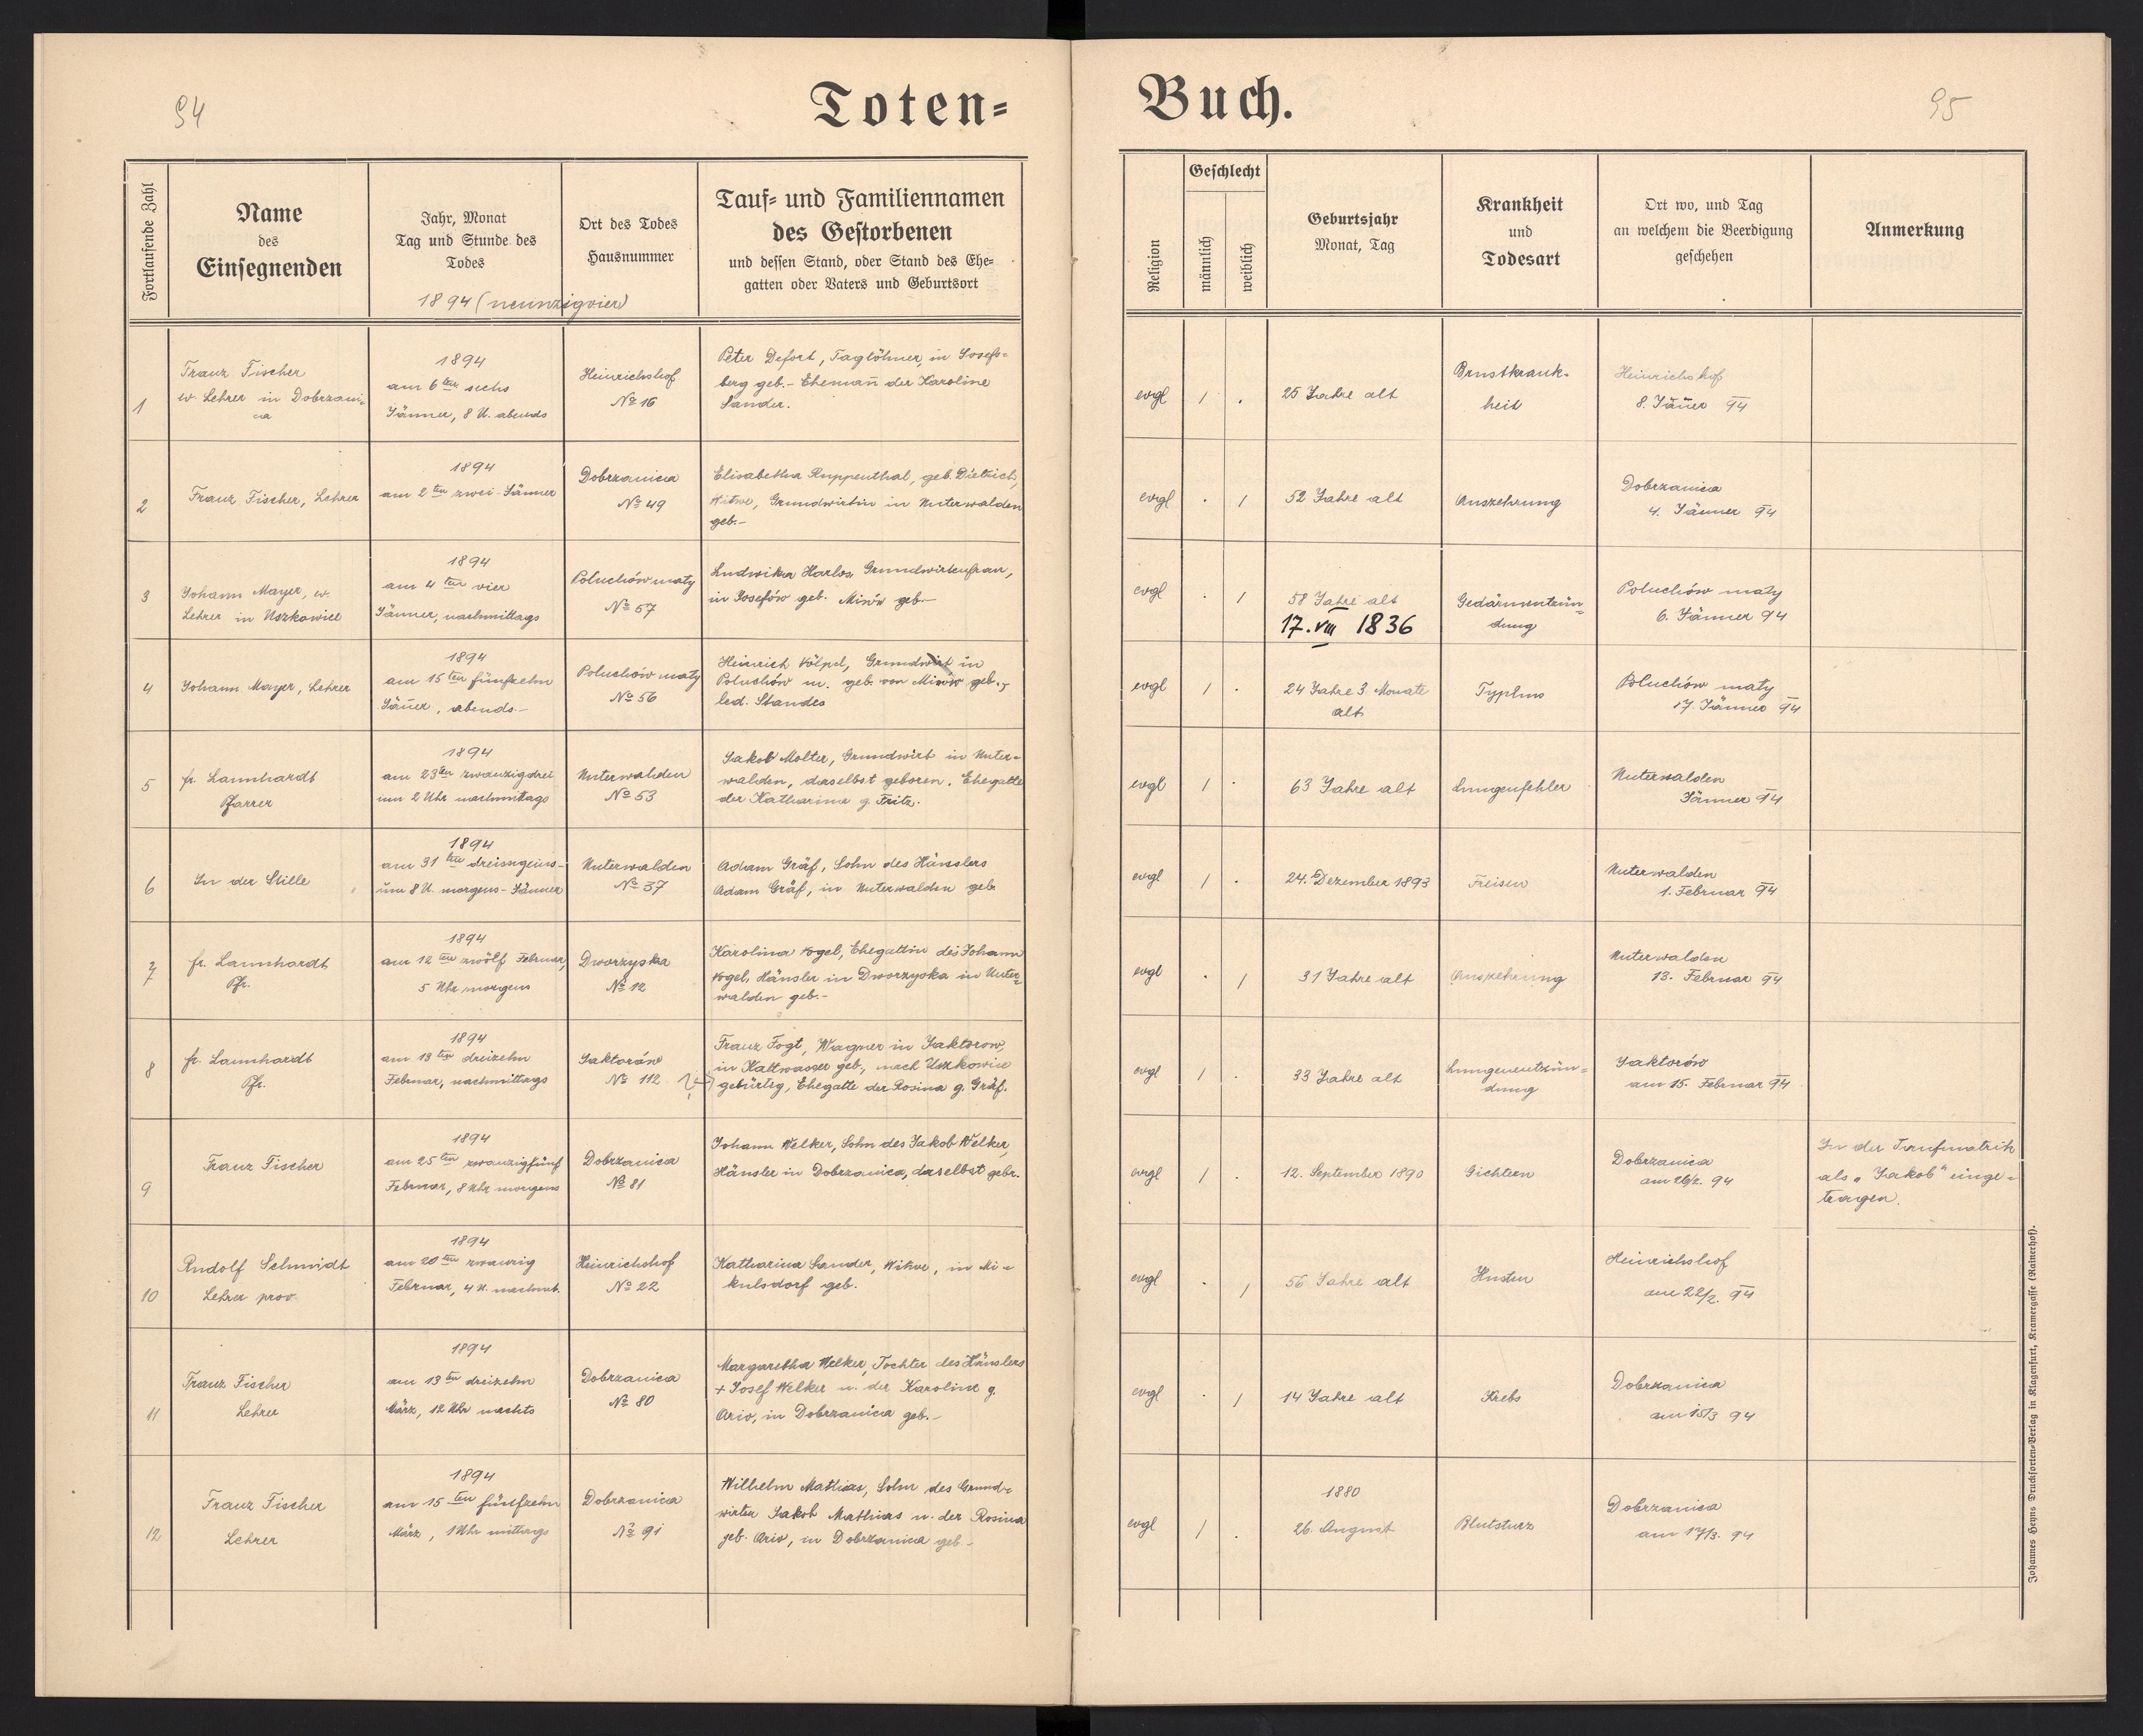 94
Toten=
Fortlaufende Zahl
Name
des
Einsegnenden
Jahr, Monat
Tag und Stunde des
Todes
Ort des Todes
Hausnummer
Tauf= und Familiennamen
des Gestorbenen
und dessen Stand, oder Stand des Ehe=
gatten oder Vaters und Geburtsort
1894 (neunzigvier)
1
Franz Fischer
w. Lehrer in Dobrzani-
ca
1894
am 6ten sechs
Jänner, 8 U. abends
Heinrichshof
№ 16
Peter Defort, Taglöhner, in Josefs-
berg geb.- Ehemann der Karoline
Sander.
2
Franz Fischer, Lehrer
1894
am 2ten zwei - Jänner
Dobrzanica
№ 49
Elisabetha Ruppenthal, geb. Dietrich,
Witwe, Grundwirtin in Unterwalden
geb.-
3
Johann Mayer, w.
Lehrer in Uszkowice
1894
am 4ten vier
Jänner, nachmittags
Poluchów mały
№ 57
Ludwika Harlos, Grundwirtenfrau,
in Josefów geb. Misów geb.-
4
Johann Mayer, Lehrer
1894
am 15ten fünfzehn
Jäner, abends.-
Poluchów mały
№ 56
Heinrich Völpel, Grundwirt in
Poluchów m. geb. von Misów geb.,
led. Standes
5
fr. Lannhardt
Pfarrer
1894
am 23ten zwanzigdrei
um 2 Uhr nachmittags
Unterwalden
№ 53
Jakob Molter, Grundwirt in Unter-
walden, daselbst geboren, Ehegatte
der Katharina g. Fritz.
6
In der Stille
1894
am 31ten dreissigeins-
um 8 U. morgens - Jänner
Unterwalden
№ 37
Adam Gräf, Sohn des Häuslers
Adam Gräf, in Unterwalden geb.
7
fr. Lannhardt
Pfr.
1894
am 12ten zwölf Februar,
5 Uhr morgens
Dworzyska
№ 12
Karolina Vogel, Ehegattin des Johann
Vogel, Häusler in Dworzyska in Unter-
walden geb.-
8
fr. Lannhardt
Pfr.
1894
am 13ten dreizehn
Februar, nachmittags
Jaktorów
№ 112
Franz Fogt, Wagner in Jaktorow,
in Kaltwasser geb., nach Uszkowice
gebürtig, Ehegatte der Rosina g. Gräf.
9
Franz Fischer
1894
am 25ten zwanzigfünf
Februar, 8 Uhr morgens
Dobrzanica
№ 81
Johann Welker, Sohn des Jakob Welker,
Häusler in Dobrzanica, daselbst gebr.
10
Rudolf Schmidt
Lehrer prov.
1894
am 20ten zwanzig
Februar, 4 U. nachmit.
Heinrichshof
№ 22
Katharina Sander, Witwe, in Mi-
kulsdorf geb.
11
Franz Fischer
Lehrer
1894
am 13ten dreizehn
März, 12 Uhr nachts
Dobrzanica
№ 80
Margaretha Welker, Tochter des Häuslers
+ Josef Welker u. der Karoline g.
Ariv, in Dobrzanica geb.-
12
Franz Fischer
Lehrer
1894
am 15ten fünfzehn
März, 1 Uhr mittags
Dobrzanica
№ 91
Wilhelm Mathias, Sohn des Grund-
wirten Jakob Mathias u. der Rosina
geb. Ariv, in Dobrzanica geb.-
Buch.
95
Religion
Geschlecht
männlich
weiblich
Geburtsjahr
Monat, Tag
Krankheit
und
Todesart
Ort wo, und Tag
an welchem die Beerdigung
geschehen
Anmerkung
evgl
1
25 Jahre alt
Brustkrank-
heit
Heinrichshof
8. Jäner 94
evgl
1
52 Jahre alt
Auszehrung
Dobrzanica
4. Jänner 94
evgl
1
58 Jahre alt
17. VIII 1836
Gedärmentzün-
dung
Poluchów mały
6. Jänner 94
evgl
1
24 Jahre 3 Monate
alt
Typhus
Poluchów mały
17. Jänner 94
evgl
1
63 Jahre alt
Lungenfehler
Unterwalden
Jänner 94
evgl
1
24. Dezember 1893
Freisen
Unterwalden
1. Februar 94
evgl
1
31 Jahre alt
Auszehrung
Unterwalden
13. Februar 94
evgl
1
33 Jahre alt
Lungenentzün-
dung
Jaktorów
am 15. Februar 94
evgl
1
12. September 1890
Gichtern
Dobrzanica
am 26/2. 94
In der Taufmatrik
als „Jakob" einge-
tragen.
evgl
1
56 Jahre alt
Husten
Heinrichshof
am 22/2. 94
evgl
1
14 Jahre alt
Krebs
Dobrzanica
am 15/3 94
evgl
1
1880
26. August
Blutsturz
Dobrzanica
am 17/3. 94
Johannes Heyns Drucksorten-Verlag in Klagenfurt, Kramergasse (Rainerhof).